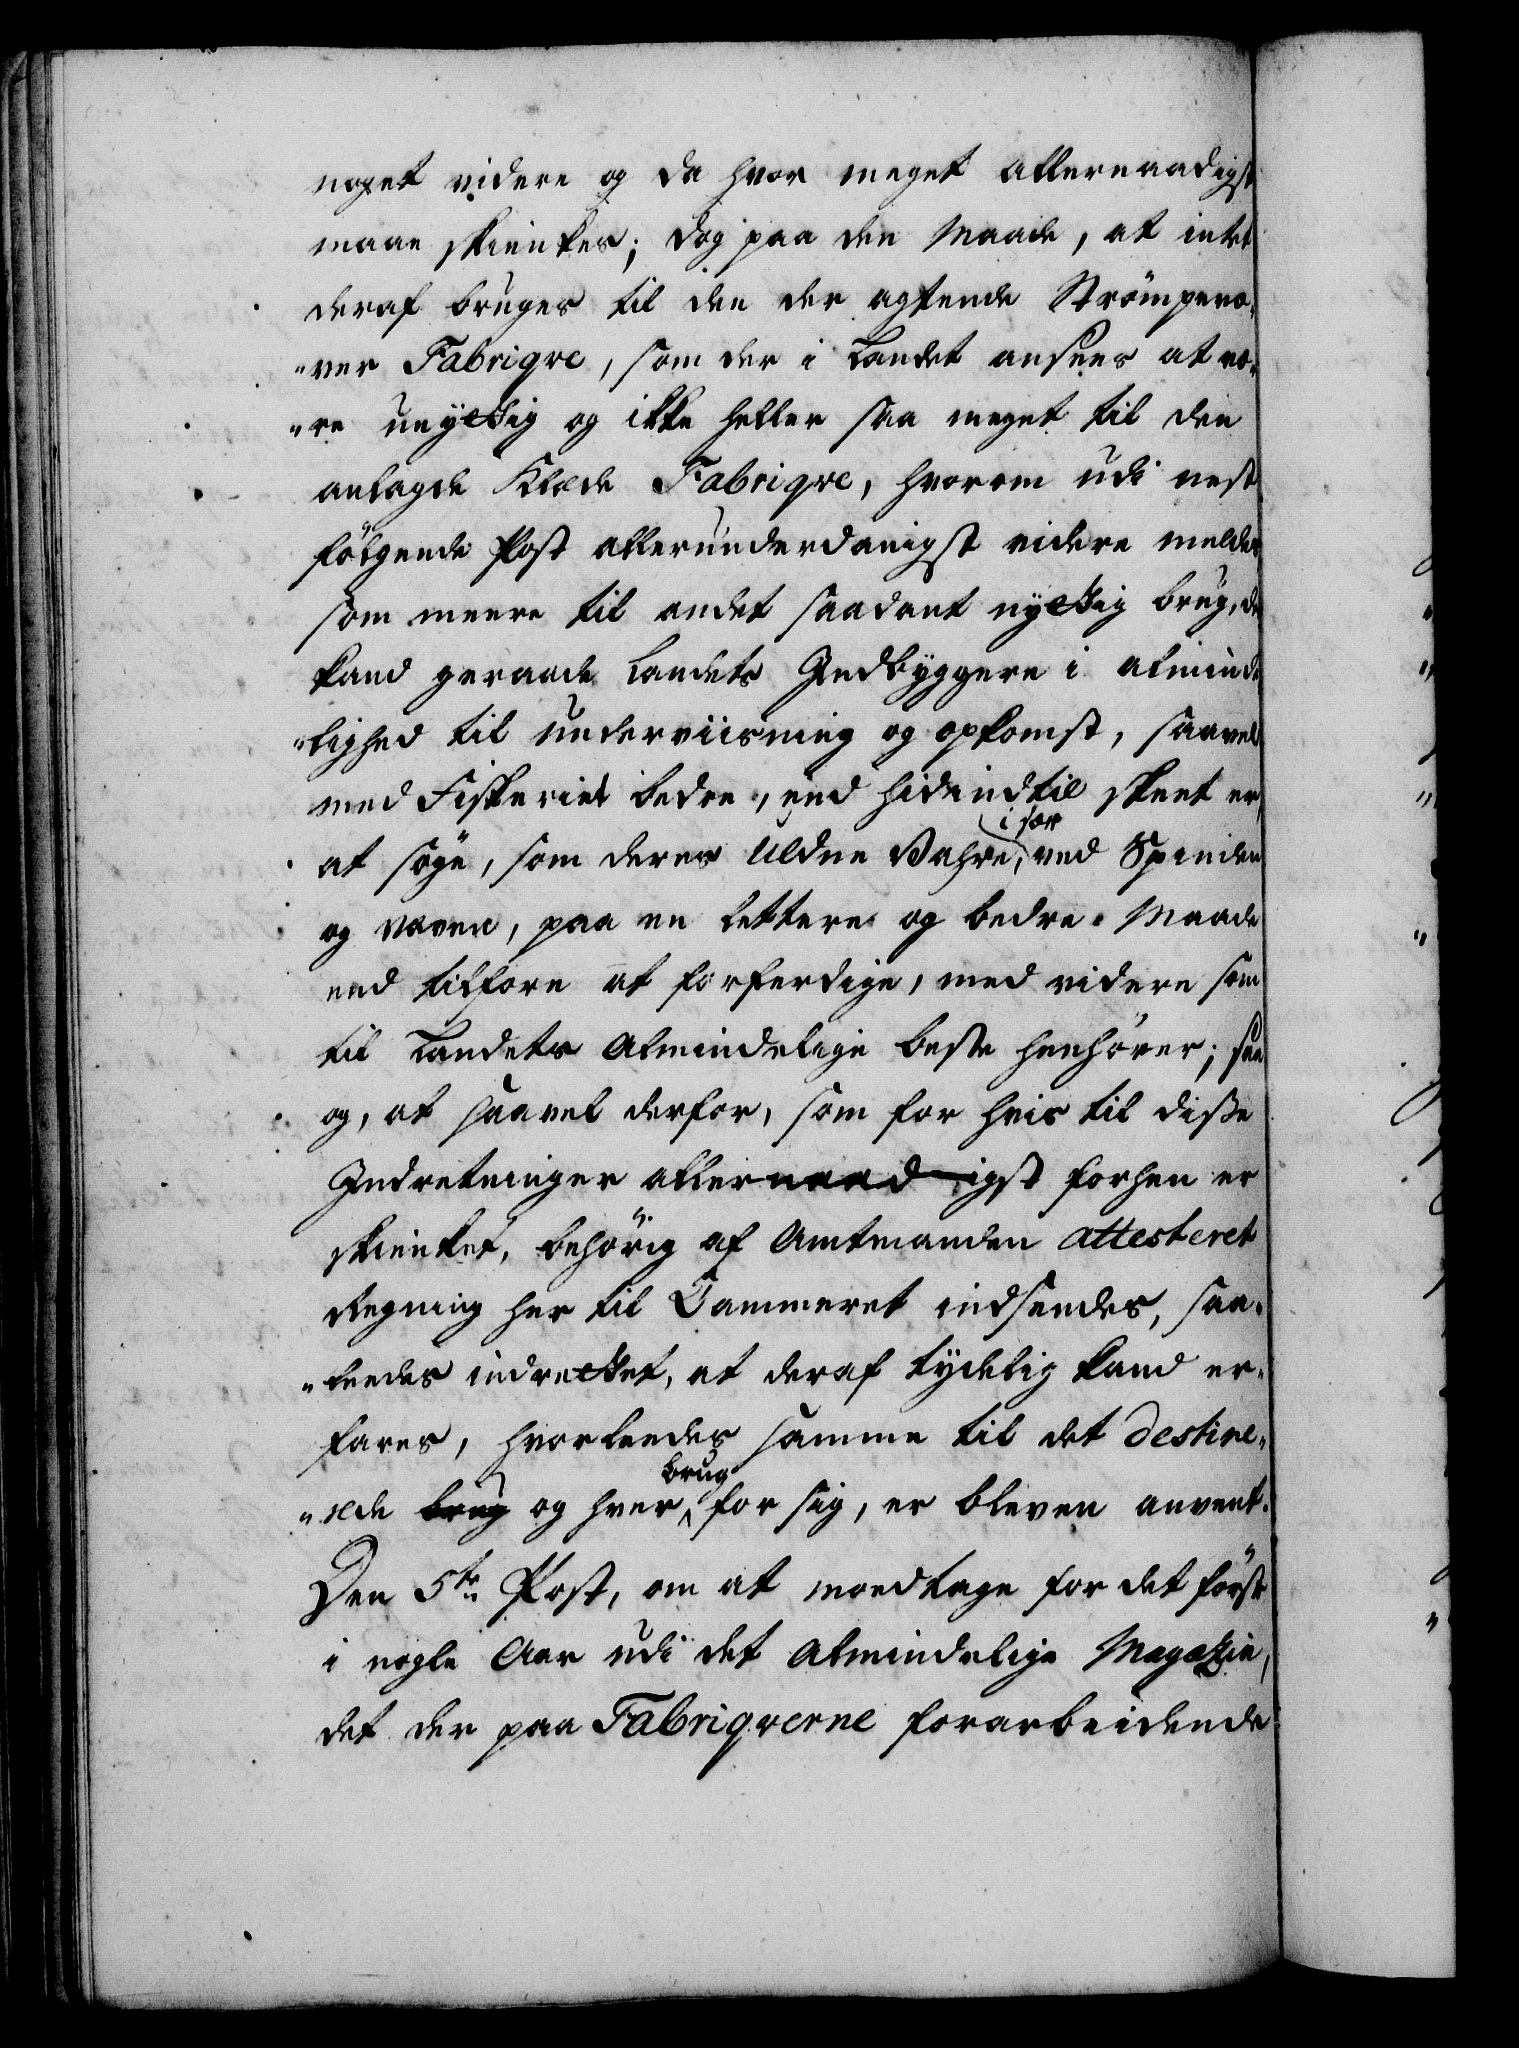 noget videre og da hvor meget allernaadigst
maae skienkes; dog paa den Maade, at intet
deraf bruges til den der agtende Strömpevæ¬
"ver Fabriqve, som der i Landet ansees at væ¬
"re unyttig og ikke heller saa meget til den
anlagde Klæde Fabriqve, hvorom udi nest
fölgende Post allerunderdanigst videre meldes
som meere til andet saadant nyttig brug, der
kand geraade Landets Indbyggere i alminde
"lighed til underviisning og opkomst, saavel
med Fiskeriet bedre, end hidindtil skeet er,
at søge, som deres Uldne Vahre, i sær ved Spinden
og Væven, paa en lettere og bedre Maade
end tilforn at forferdige, med videre som
til Landets Almindelige beste henhører; saa
og, at saavel derfor, som for hvis til disse
Indretninger allernaadigst forhen er
skienket, behörig af Amtmanden attesteret
Regning her til Cammeret indsendes, saa¬
"ledes indrettet, at deraf tydelig kand er¬
fares, hvorledes samme til det destine¬
"rede brug og hver brug for sig, er bleven anvent.
Den 5te Post, om at modtage for det först
i nogle Aar udi det Almindelige Magazin,
det der paa Fabriqverne forarbeidende